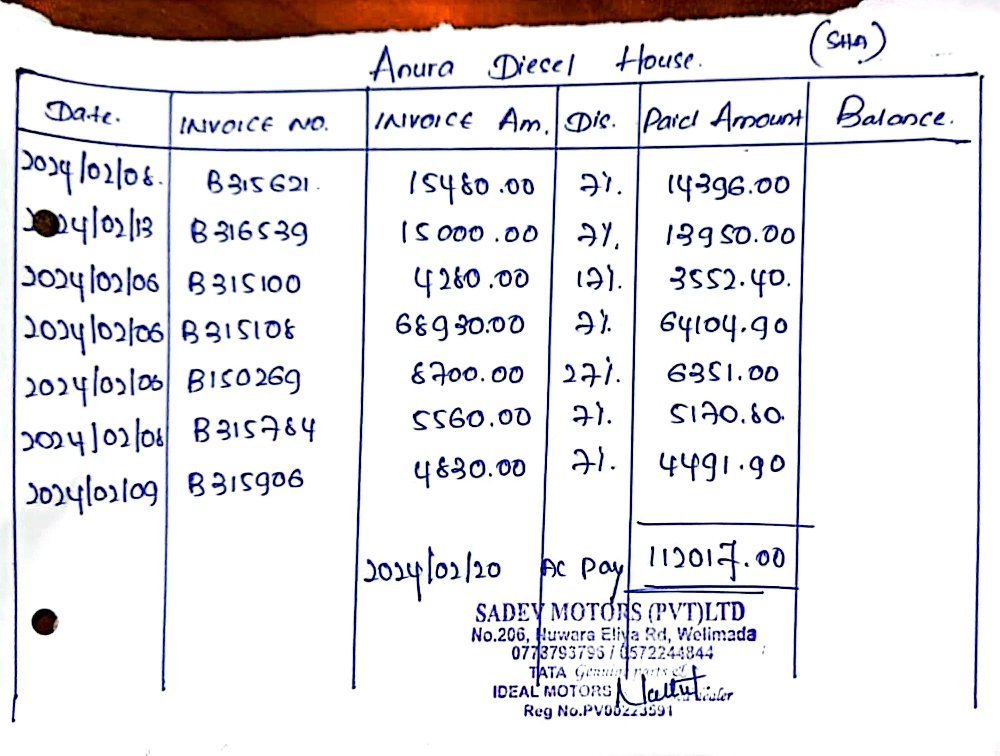 Anura Diesel House. (SHA)
Date. INVOICE NO. INVOICE Am. Dis. Paid Amount Balance.
2024/02/08. B315621. 15480.00 7%. 14396.00
2024/02/13 B316539 15000.00 7%. 13950.00
2024/02/06 B315100 4280.00 17%. 3552.40.
2024/02/06 B315108 68930.00 7%. 64104.90
2024/02/06 B150269 8700.00 27%. 6351.00
2024/02/08 B315784 5560.00 7%. 5170.80.
2024/02/09 B315906 4830.00 7%. 4491.90
2024/02/20 AC Pay 112017.00
SADEV MOTORS (PVT)LTD
No.206, Nuwara Eliya Rd, Welimada
0773793796 / 0572244844
TATA Genuine parts of
IDEAL MOTORS Dealer
Reg No.PV00223591